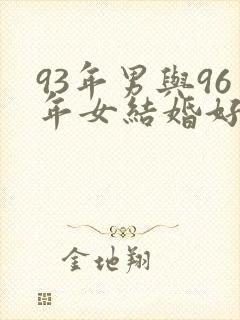 93年男與96
年女結婚好
金地翔